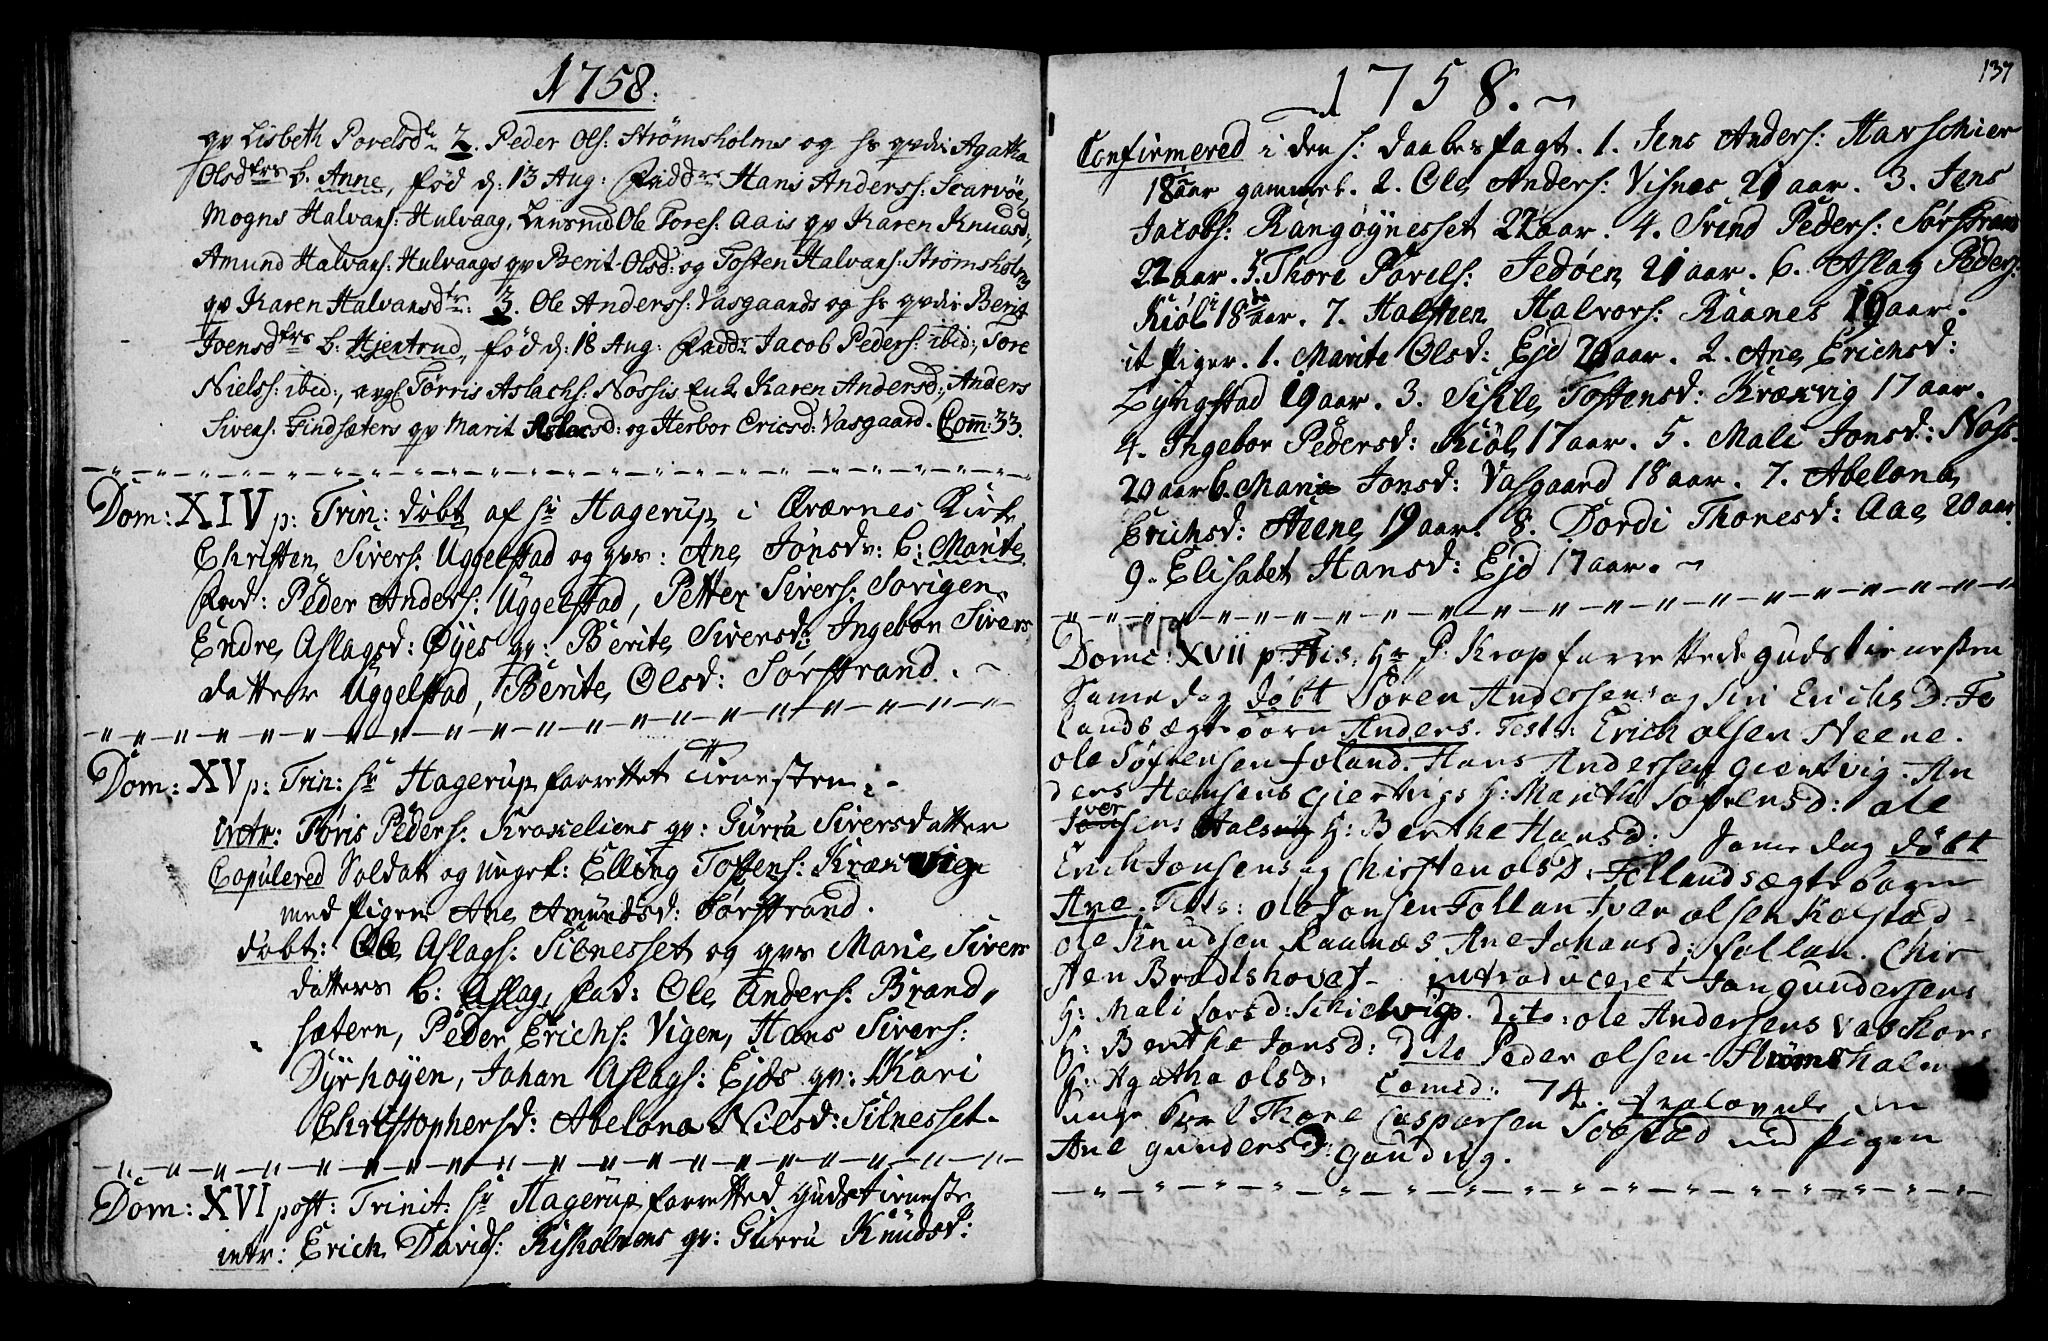 1758.
qv Lisbeth Porelsd: 2. Peder Ols: Strömsholms og hs qvde Agatha
Olsdtrs b: Anne, föd d: 13 Aug: Fadd: Hans Anderss: Scarvöe,
Mogns Halvars: Hulvaag, Lensmd Ole Tores: Aais qv Karen Knudsd,
Amund Halvars: Hulvaags qv Berit Olsd: og Tosten Halvars: Strømsholms
qv Karen Halvarsdtr: 3. Ole Anderss: Vasgaards og hs qvde Berit
Joensdtrs b: Hjertrud, föd d: 18 Aug: Fadd: Jacob Peders: ibid:, Tore
Nielss: ibid:, Tørris Aslachs: Nossis Karen Andersd:, Anders
Sivers: Findsæters qv Marit d: og Herbor Ericsd: Vasgaard. Com: 33.
Dom: XIV p: Trin: döbt af Hr Hagerup i Qværnes Kirke
Christen Sivers: Uggelstad og qvs: Ane Jönsdr: b: Marite
Fad: Peder Anders: Uggelstad, Petter Sivers: Sorigen,
Endre Aslagsd: Øyes qv: Berite Siversd: Ingebor Sivers
datter Uggelstad, Berite Olsd: Sørstrand.
Dom: XV p: Trin: Hr Hagerup forrettet Tienesten:
intr: Töris Peders: qv: Gurru Siversdatter
Copulered Soldat og ungk: Elling Tostens: Kræxvig
med Pigen Ane Amundsd: Sørstrand.
döbt: Ole Aslags: Silnesset og qvs Marie Sivers
datters b: Aslag, Fad: Ole Anders: Brand
sætern, Peder Erichs: Vigen, Hans Sivers:
Dyrhoyen, Johan Aslags: Ejds qv: Kari
Christophersd: Abelona Nilsd: Silnesset.
Dom: XVI post: Trinit: Hr Hagerup forretted Gudstieneste
intr: Erich Davids: Risholmens qv: Gurru Knüdsd:
137
1758.
Confirmered i den h: daabes pagt. 1. Jens Anders: Harschier
18 aar gammel. 2. Ole Anders: Visnes 21 aar. 3. Jens
Jacobs: Rangöynesset 22 aar. 4. Trind Peders: Sørstrand
22 aar. 5. Thore Porels: Jedöen 21 aar. 6. Aslag Peders:
Kiöl 18 aar. 7. Halsten Halvors: Raanes 19 aar.
it Piger. 1. Marite Olsd: Ejd 20 aar. 2. Ane Erichsd:
Lyngstad 19 aar. 3. Sikle Tostensd: Kræxvig 17 aar.
4. Ingebor Pedersd: Kiöl 17 aar. 5. Mali Jonsd: Noss
20 aar 6. Maria Jonsd: Vasgaard 18 aar. 7. Abelona
Erichsd: Steene 19 aar. 8. Dordi Thoresd: Aae 20 aar.
9. Elisabet Hansd: Ejd 17 aar.
Domc: XVII p: Hr P: Krop forrettede gudstienesten
Same dag döbt Sören Andersen og Siri Erichs D: Fo
lands ægte barn Anders. Test: Erich olsen Neene.
ole Söfrensen foland. Hans Andersen giertvig. An
ders Hansens giertvigs h: Marith Söfrensd: ole
Iversens h: Berthe Hansd: Same dag döbt
Erich Jonsens og Chirsten ols D: Follands ægte
Ane. Tests: ole Jonsen Follan Iver olsen Kolstad
ole Knudsen Raanæs Ane Johans d: follan. Chir
sten Bradtshovat - introduceret Jon gundersens
h: Mali lars d: Schielvig. Dito: ole Andersens Vaschor
h: Berthe Jonsd: Dito Peder olsen Strömsholm
h: Agatha ols D: Comcd: 74. trolovede den
unge Thore Caspersen Solstad med Pigen
Ane gunders D: gaudvig.